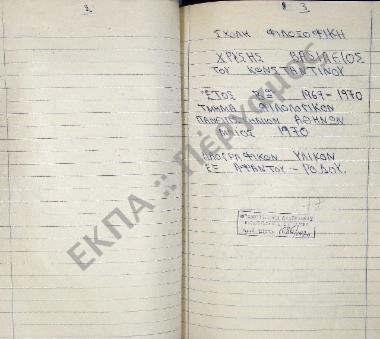 2.
3
ΣΧΟΛΗ ΦΙΛΟΣΟΦΙΚΗ
ΧΡΥΣΗΣ ΒΑΣΙΛΕΙΟΣ
ΤΟΥ ΚΩΝΣΤΑΝΤΙΝΟΥ
ΕΤΟΣ 1967-1970
ΤΜΗΜΑ ΦΙΛΟΛΟΓΙΚΟΝ
ΠΑΝΕΠΙΣΤΗΜΙΟΝ ΑΘΗΝΩΝ
ΜΑΙΟΣ 1970
ΛΑΟΓΡΑΦΙΚΟΝ ΥΛΙΚΟΝ
ΕΞ ΑΦΑΝΤΟΥ - ΡΟΔΟΥ.
ΕΚΠΑ :: Πέργαμος